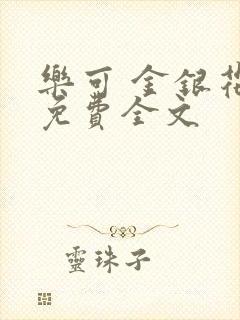 樂可 金銀花
免費全文
靈珠子